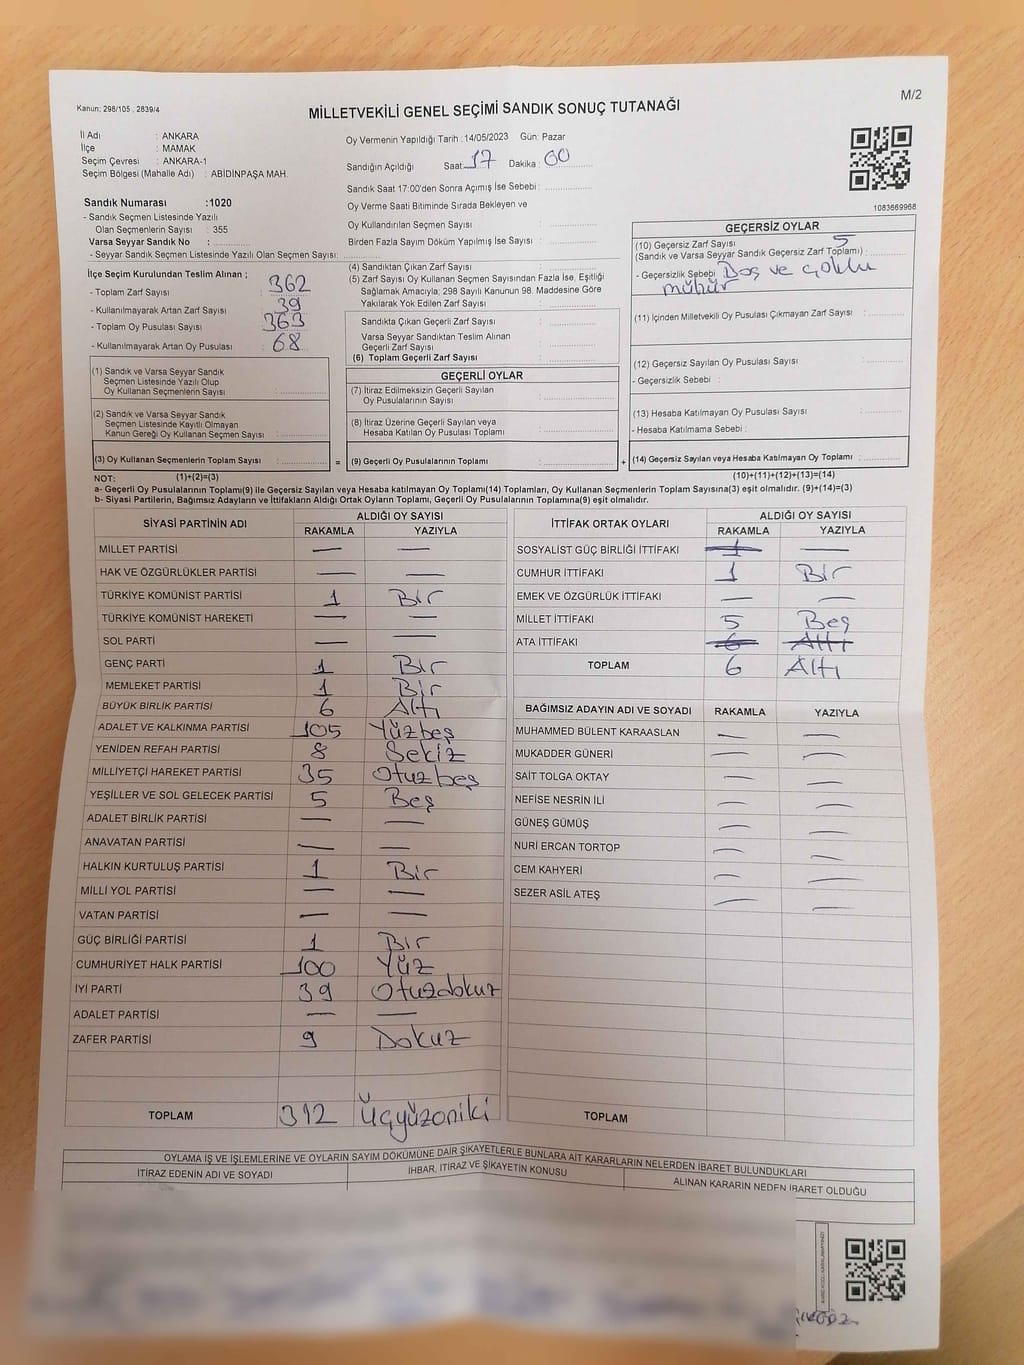 Kanun; 298/105 , 2839/4
M/2
MİLLETVEKİLİ GENEL SEÇİMİ SANDIK SONUÇ TUTANAĞI
İl Adı : ANKARA
İlçe : MAMAK
Seçim Çevresi : ANKARA-1
Seçim Bölgesi (Mahalle Adı) : ABİDİNPAŞA MAH.
Sandık Numarası :1020
- Sandık Seçmen Listesinde Yazılı
Olan Seçmenlerin Sayısı : 355
Varsa Seyyar Sandık No :
- Seyyar Sandık Seçmen Listesinde Yazılı Olan Seçmen Sayısı:
İlçe Seçim Kurulundan Teslim Alınan ;
- Toplam Zarf Sayısı : 362
- Kullanılmayarak Artan Zarf Sayısı : 39
- Toplam Oy Pusulası Sayısı : 363
- Kullanılmayarak Artan Oy Pusulası : 68
(1) Sandık ve Varsa Seyyar Sandık
Seçmen Listesinde Yazılı Olup
Oy Kullanan Seçmenlerin Sayısı :
(2) Sandık ve Varsa Seyyar Sandık
Seçmen Listesinde Kayıtlı Olmayan
Kanun Gereği Oy Kullanan Seçmen Sayısı :
(3) Oy Kullanan Seçmenlerin Toplam Sayısı :
Oy Vermenin Yapıldığı Tarih :14/05/2023 Gün: Pazar
Sandığın Açıldığı Saat: 17 Dakika : 00
Sandık Saat 17:00'den Sonra Açımış İse Sebebi :
Oy Verme Saati Bitiminde Sırada Bekleyen ve
Oy Kullandırılan Seçmen Sayısı :
Birden Fazla Sayım Döküm Yapılmış İse Sayısı :
(4) Sandıktan Çıkan Zarf Sayısı :
(5) Zarf Sayısı Oy Kullanan Seçmen Sayısından Fazla İse, Eşitliği
Sağlamak Amacıyla; 298 Sayılı Kanunun 98. Maddesine Göre
Yakılarak Yok Edilen Zarf Sayısı :
Sandıkta Çıkan Geçerli Zarf Sayısı :
Varsa Seyyar Sandıktan Teslim Alınan
Geçerli Zarf Sayısı :
(6) Toplam Geçerli Zarf Sayısı :
GEÇERLİ OYLAR
(7) İtiraz Edilmeksizin Geçerli Sayılan
Oy Pusulalarının Sayısı :
(8) İtiraz Üzerine Geçerli Sayılan veya
Hesaba Katılan Oy Pusulası Toplamı :
= (9) Geçerli Oy Pusulalarının Toplamı :
1083669968
GEÇERSİZ OYLAR
(10) Geçersiz Zarf Sayısı 5
(Sandık ve Varsa Seyyar Sandık Geçersiz Zarf Toplamı) :
- Geçersizlik Sebebi : Boş ve çoklu
mühür
(11) İçinden Milletvekili Oy Pusulası Çıkmayan Zarf Sayısı :
(12) Geçersiz Sayılan Oy Pusulası Sayısı :
- Geçersizlik Sebebi :
(13) Hesaba Katılmayan Oy Pusulası Sayısı :
- Hesaba Katılmama Sebebi :
+ (14) Geçersiz Sayılan veya Hesaba Katılmayan Oy Toplamı :
NOT: (1)+(2)=(3) (10)+(11)+(12)+(13)=(14)
a- Geçerli Oy Pusulalarının Toplamı(9) ile Geçersiz Sayılan veya Hesaba katılmayan Oy Toplamı(14) Toplamları, Oy Kullanan Seçmenlerin Toplam Sayısına(3) eşit olmalıdır. (9)+(14)=(3)
b- Siyasi Partilerin, Bağımsız Adayların ve İttifakların Aldığı Ortak Oyların Toplamı, Geçerli Oy Pusulalarının Toplamına(9) eşit olmalıdır.
SİYASİ PARTİNİN ADI ALDIĞI OY SAYISI
RAKAMLA YAZIYLA
MİLLET PARTİSİ — —
HAK VE ÖZGÜRLÜKLER PARTİSİ — —
TÜRKİYE KOMÜNİST PARTİSİ 1 Bir
TÜRKİYE KOMÜNİST HAREKETİ — —
SOL PARTİ — —
GENÇ PARTİ 1 Bir
MEMLEKET PARTİSİ 1 Bir
BÜYÜK BİRLİK PARTİSİ 6 Altı
ADALET VE KALKINMA PARTİSİ 105 Yüzbeş
YENİDEN REFAH PARTİSİ 8 Sekiz
MİLLİYETÇİ HAREKET PARTİSİ 35 Otuzbeş
YEŞİLLER VE SOL GELECEK PARTİSİ 5 Beş
ADALET BİRLİK PARTİSİ — —
ANAVATAN PARTİSİ — —
HALKIN KURTULUŞ PARTİSİ 1 Bir
MİLLİ YOL PARTİSİ — —
VATAN PARTİSİ — —
GÜÇ BİRLİĞİ PARTİSİ 1 Bir
CUMHURİYET HALK PARTİSİ 100 Yüz
İYİ PARTİ 39 Otuzdokuz
ADALET PARTİSİ — —
ZAFER PARTİSİ 9 Dokuz
TOPLAM 312 Üçyüzoniki
İTTİFAK ORTAK OYLARI ALDIĞI OY SAYISI
RAKAMLA YAZIYLA
SOSYALİST GÜÇ BİRLİĞİ İTTİFAKI 1 —
CUMHUR İTTİFAKI 1 Bir
EMEK VE ÖZGÜRLÜK İTTİFAKI — —
MİLLET İTTİFAKI 5 Beş
ATA İTTİFAKI 6 Altı
TOPLAM 6 Altı
BAĞIMSIZ ADAYIN ADI VE SOYADI RAKAMLA YAZIYLA
MUHAMMED BÜLENT KARAASLAN — —
MUKADDER GÜNERİ — —
SAİT TOLGA OKTAY — —
NEFİSE NESRİN İLİ — —
GÜNEŞ GÜMÜŞ — —
NURİ ERCAN TORTOP — —
CEM KAHYERİ — —
SEZER ASİL ATEŞ — —
TOPLAM
OYLAMA İŞ VE İŞLEMLERİNE VE OYLARIN SAYIM DÖKÜMÜNE DAİR ŞİKAYETLERLE BUNLARA AİT KARARLARIN NELERDEN İBARET BULUNDUKLARI
İTİRAZ EDENİN ADI VE SOYADI İHBAR, İTİRAZ VE ŞİKAYETİN KONUSU ALINAN KARARIN NEDEN İBARET OLDUĞU